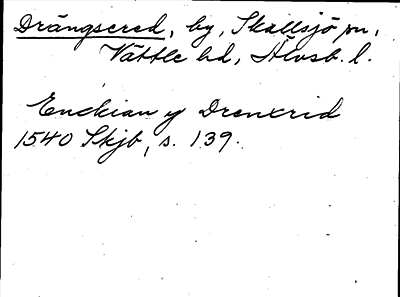 Drängsered, by, Skallsjö sn,
Vättle hd, Älvsb. l.
Enckian y Drenxrid
1540 Skjb, s. 139.